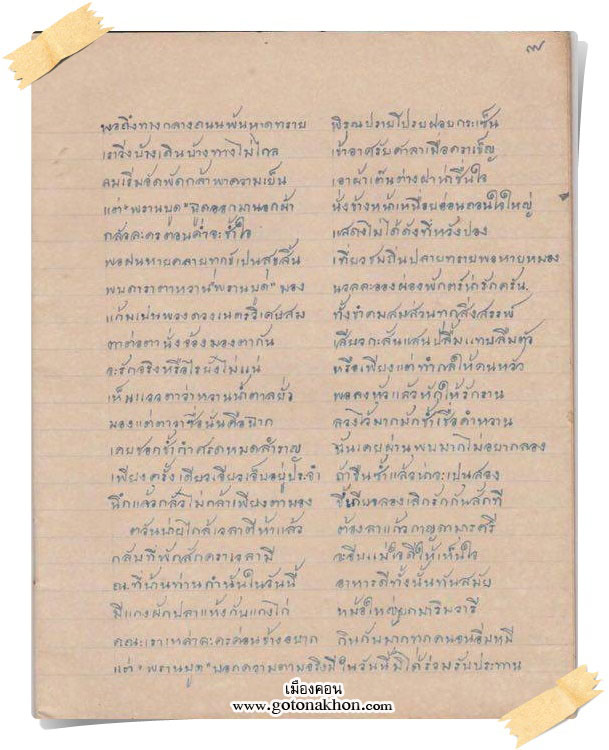 ๗
พอถึงทางกลางถนนพ้นหาดทราย พิรุณปรายโปรยฝอยกระเซ็น
เราวิ่งบ้างเดินบ้างทางไม่ไกล เข้าอาศรัยศาลาเมื่อคราเข็ญ
ลมเริ่มอัดพัดกล้าพาความเย็น เอาผ้าเต็นต่างฝาน่าชื่นใจ
แต่ "พรานบูด" ฉูดออกมานอกผ้า นั่งข้างหน้าเหนื่อยอ่อนถอนใจใหญ่
กลัวละครตอนค่ำจะช้ำใจ แสดงไม่ได้ดังที่หวังปอง
พอฝนหายคลายทุกข์เป็นสุขสิ้น เที่ยวชมถิ่นปลายทรายพอหายหมอง
พบดาราตาหวาน "พรานบูด" มอง นวลละอองผ่องพักตร์น่ารักครัน.
แก้มเปล่งดวงเนตรวิเศษสม ทั้งขำคมสมส่วนทุกสิ่งสรรพ์
ตาต่อตานั่งจ้องมองตากัน เสียวกะสันแสนปลื้มแทบลืมตัว
จะรักจริงหรือไรยังไม่แน่ หรือเพียงแต่ทำกลให้คนหวัว
เห็นแววตาว่าหวานน้ำตาลยั่ว พอคงหัวแล้วหักให้รักราน
มองแต่ตาว่าซื่อนั้นคือฉาก ลวงได้มากมักช้ำเชื่อคำหวาน
เคยชอกช้ำกำศรดหมดสำราญ ฉันเคยผ่านพบมากไม่อยากลอง
เพียงครั้งเดียวเจียวเจ็บอยู่ประจำ ถ้าขืนซ้ำแล้วน่าจะเป็นสอง
นึกแล้วกลัวไม่กล้าเพียงตามอง ขี้เกียจลองเลิกรักกันสักที
ตวันบ่ายใกล้เวลาตีห้าแล้ว ต้องลาแก้วกาญดามารศรี
กลับที่พักสักคราเวลามี จะอีบแม่ใจดีให้เห็นใจ
ณ.ที่บ้านท่านกำนันในวันนี้ อาหารดีทั้งนั้นทันสมัย
มีแกงผักปลาแห้งกับแกงไก่ หม้อใหญ่ยกมาริมวารี
คณะเราเหล่าละครค่อนข้างอยาก กินกันมากทุกคนจนอิ่มหมี
แต่ "พรานบูด" บอกความตามคดีมี ในวันนี้มิได้ร่วมรับประทาน
เมืองคอน
www.gotonakhon.com